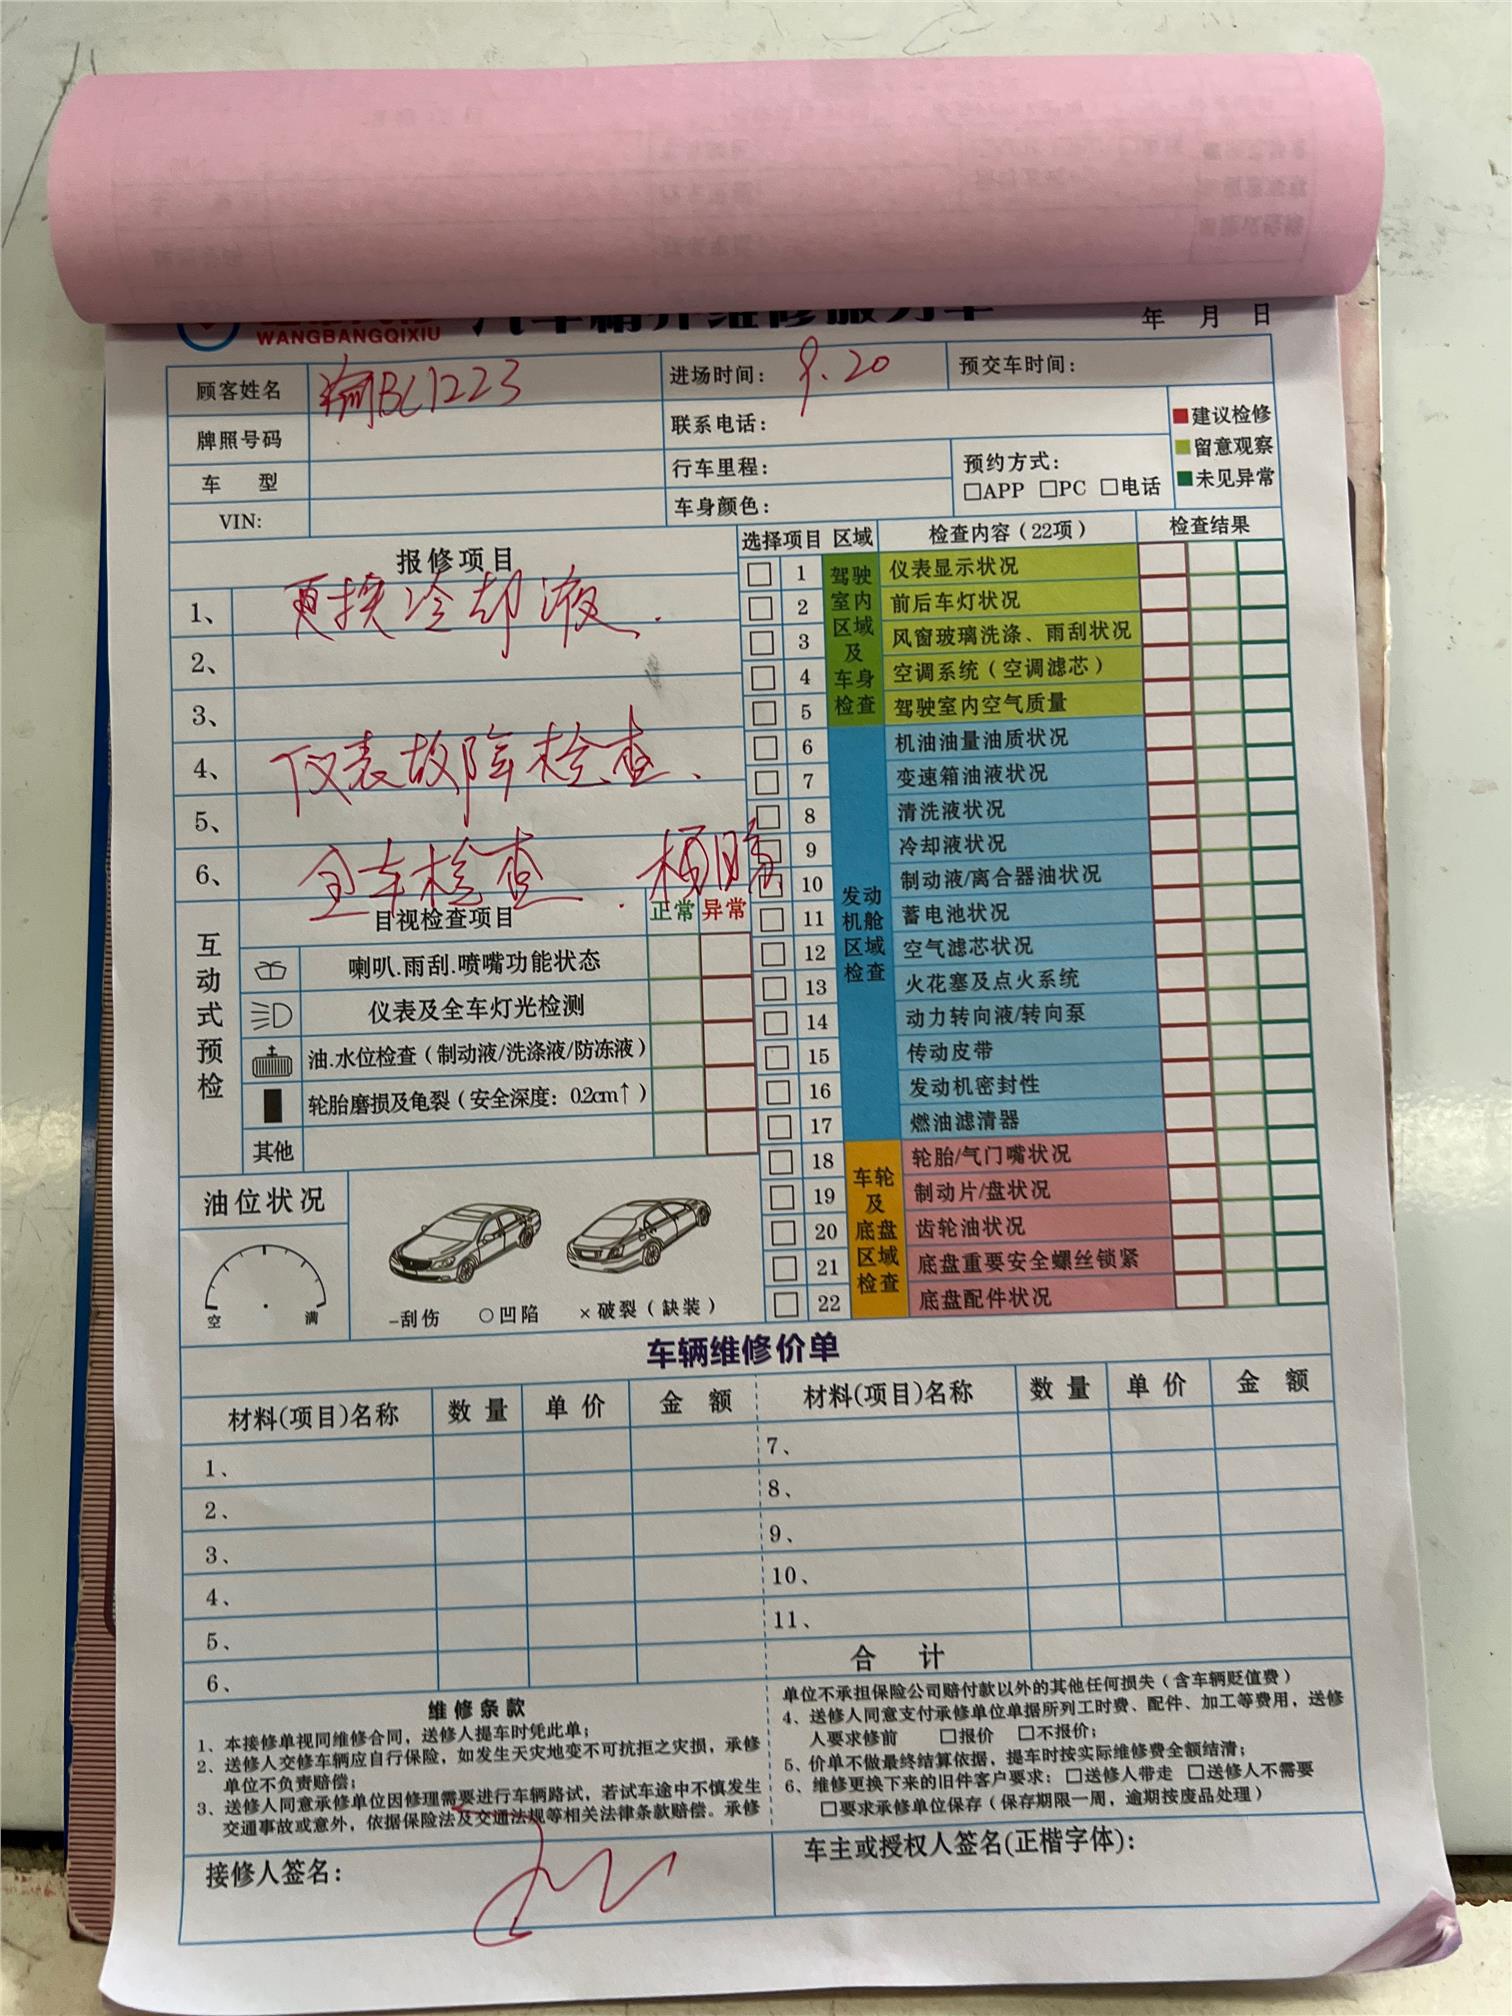 WANGBANGQIXIU
汽车精养维修服务单
年 月 日
顾客姓名 渝BC1223 进场时间: 9.20 预交车时间:
牌照号码 联系电话:
■建议检修
■留意观察
■未见异常
车 型 行车里程: 预约方式:
□APP □PC □电话
VIN: 车身颜色:
报修项目
1、 更换冷却液.
2、
3、
4、 仪表故障检查、
5、
6、 全车检查.
选择项目 区域 检查内容(22项) 检查结果
驾驶室内区域及车身检查
1 仪表显示状况
2 前后车灯状况
3 风窗玻璃洗涤、雨刮状况
4 空调系统(空调滤芯)
5 驾驶室内空气质量
发动机舱区域检查
6 机油油量油质状况
7 变速箱油液状况
8 清洗液状况
9 冷却液状况
10 制动液/离合器油状况
11 蓄电池状况
12 空气滤芯状况
13 火花塞及点火系统
14 动力转向液/转向泵
15 传动皮带
16 发动机密封性
17 燃油滤清器
车轮及底盘区域检查
18 轮胎/气门嘴状况
19 制动片/盘状况
20 齿轮油状况
21 底盘重要安全螺丝锁紧
22 底盘配件状况
互动式预检
目视检查项目 正常 异常
喇叭.雨刮.喷嘴功能状态
仪表及全车灯光检测
油.水位检查(制动液/洗涤液/防冻液)
轮胎磨损及龟裂(安全深度: 0.2cm↑)
其他
油位状况
空 满
-刮伤 ○凹陷 ×破裂(缺装)
车辆维修价单
材料(项目)名称 数量 单价 金 额 材料(项目)名称 数量 单价 金 额
1、 7、
2、 8、
3、 9、
4、 10、
5、 11、
6、 合 计
维修条款
1、本接修单视同维修合同，送修人提车时凭此单;
2、送修人交修车辆应自行保险，如发生天灾地变不可抗拒之灾损，承修
单位不负责赔偿;
3、送修人同意承修单位因修理需要进行车辆路试，若试车途中不慎发生
交通事故或意外，依据保险法及交通法规等相关法律条款赔偿。承修
单位不承担保险公司赔付款以外的其他任何损失(含车辆贬值费)
4、送修人同意支付承修单位单据所列工时费、配件、加工等费用，送修
人要求修前 □报价 □不报价;
5、价单不做最终结算依据，提车时按实际维修费全额结清;
6、维修更换下来的旧件客户要求: □送修人带走 □送修人不需要
□要求承修单位保存(保存期限一周，逾期按废品处理)
接修人签名: 车主或授权人签名(正楷字体):